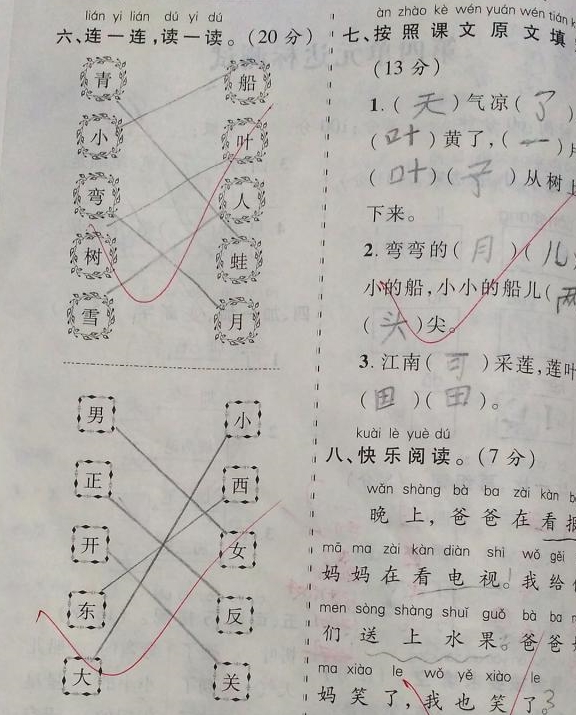 lián yi lián dú yi dú
六、连一连,读一读。(20分)
青 船
小 叶
弯 人
树 蛙
雪 月
男 小
正 西
开 女
东 反
大 关
àn zhào kè wén yuán wén tián
七、按照课文原文填
(13分)
1.(天)气凉(了)
(叶)黄了,(一)片
(叶)(子)从树上
下来。
2.弯弯的(月)(儿)
小的船,小小的船儿(两
(头)尖。
3.江南(可)采莲,莲叶
(田)(田)。
kuài lè yuè dú
八、快乐阅读。(7分)
wǎn shàng bà ba zài kàn b
晚上,爸爸在看报
mā ma zài kàn diàn shì wǒ gěi
妈妈在看电视。我给
men sòng shàng shuǐ guǒ bà ba
们送上水果。爸爸
ma xiào le wǒ yě xiào le
妈笑了,我也笑了。3